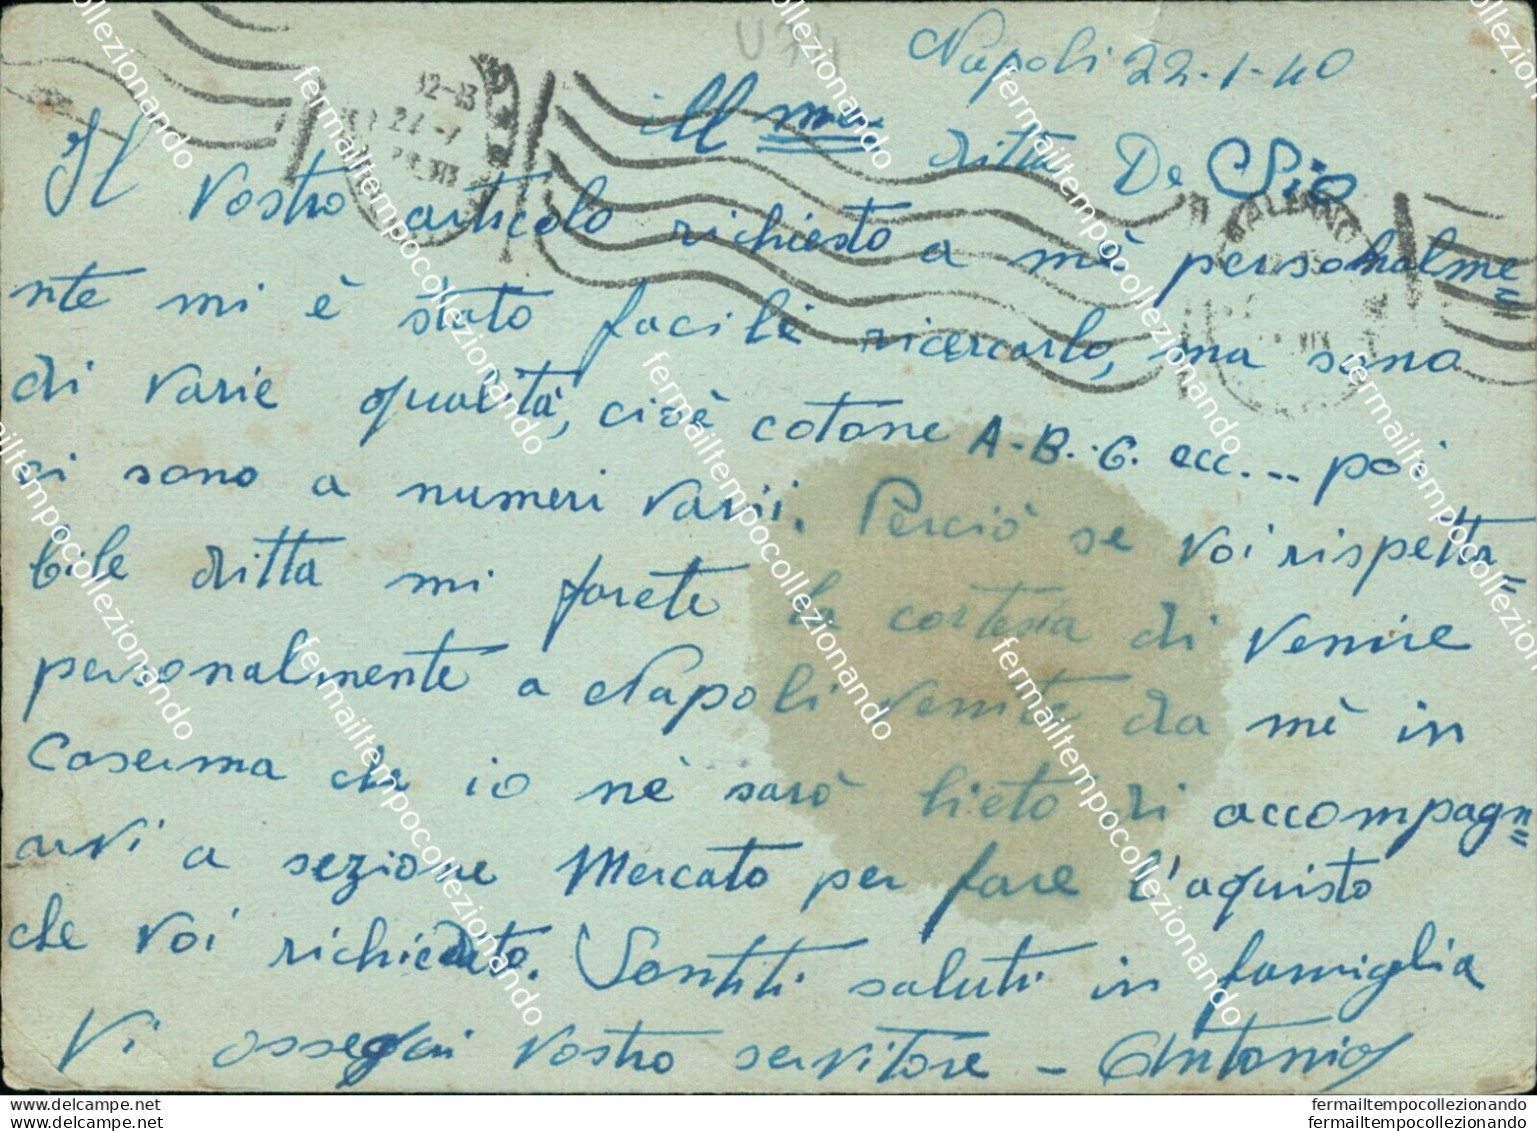 Napoli 22-1-40
Ill mo ditta De Sio
Il vostro articolo richiesto a mè personalme=
nte mi è stato facile ricercarlo, ma sono
di varie qualità, cioè cotone A-B.-C. ecc... poi
ci sono a numeri varii. Perciò se voi rispetta=
bile ditta mi farete la cortesia di venire
personalmente a Napoli venite da mè in
Caserma che io nè sarò lieto di accompagn=
arvi a sezione Mercato per fare l'aquisto
che voi richiedete. Sentiti saluti in famiglia
Vi ossequi vostro servitore - Antonio
fermailtempocollezionando
www.fermailtempocollezionando.com
fermailtempocollezionando
www.fermailtempocollezionando.com